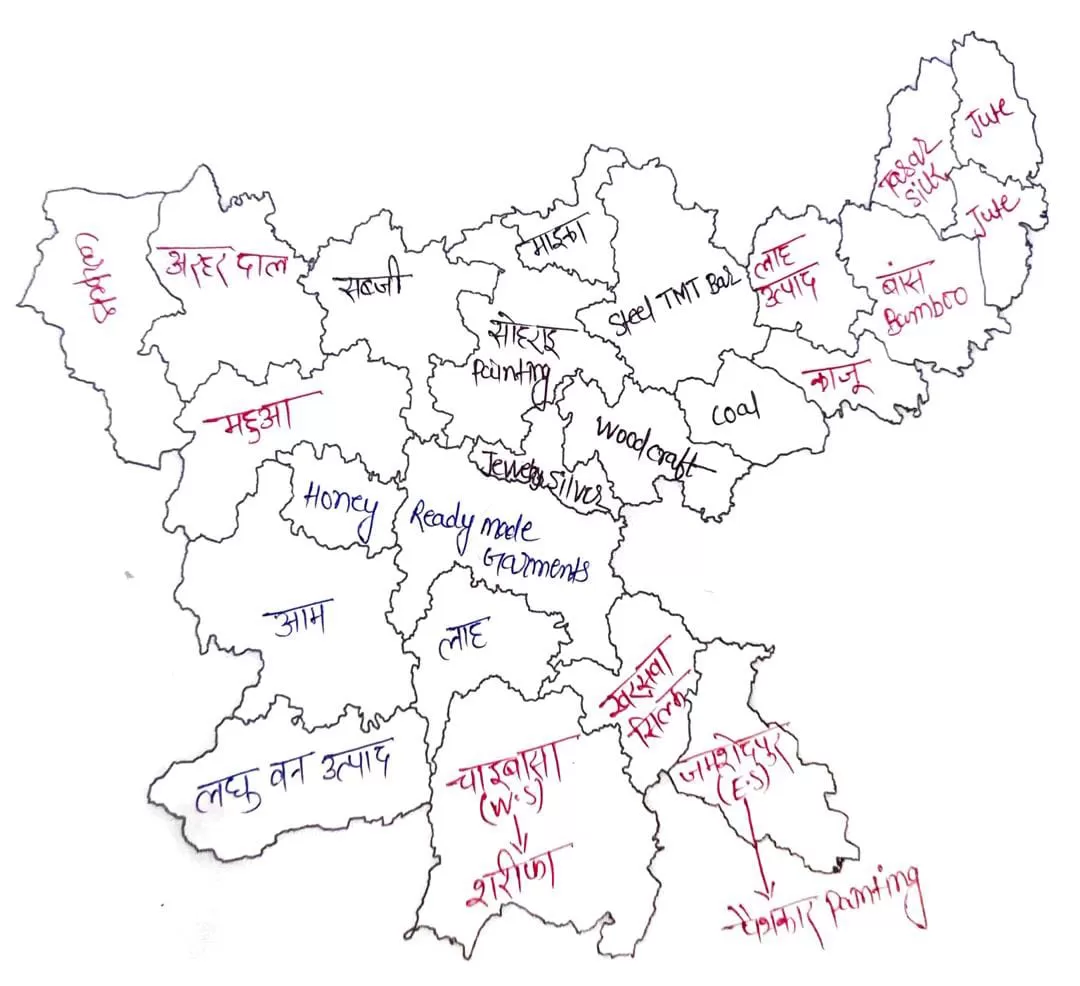 Jute
Tasar
Silk
Jute
Carpets
अरहर दाल
सब्जी
माइका
Steel TMT Bar
लाह
उत्पाद
बांस
Bamboo
सोहराइ
Painting
काजू
महुआ
Coal
Wood craft
Jewelry Silver
Honey
Ready made
Garments
आम
लाह
खरसवा
सिल्क
लघु वन उत्पाद
चाइबासा
(W.S)
शरीफा
जमशेदपुर
(E.S)
पैथकार Painting